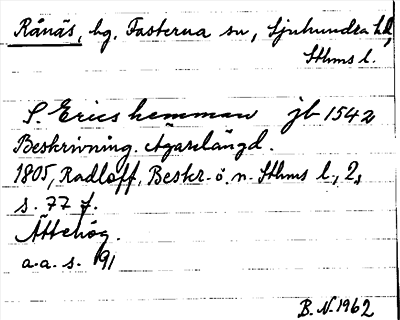 Rånäs, bg. Fasterna sn, Sjuhundra hd,
Sthms l.
S. Erics hemman jb 1542
Beskrivning. Ägarelängd.
1805, Radloff, Beskr. ö. n. Sthms l., 2,
s. 77 f.
Ättehög.
a.a. s. 91
B. N. 1962